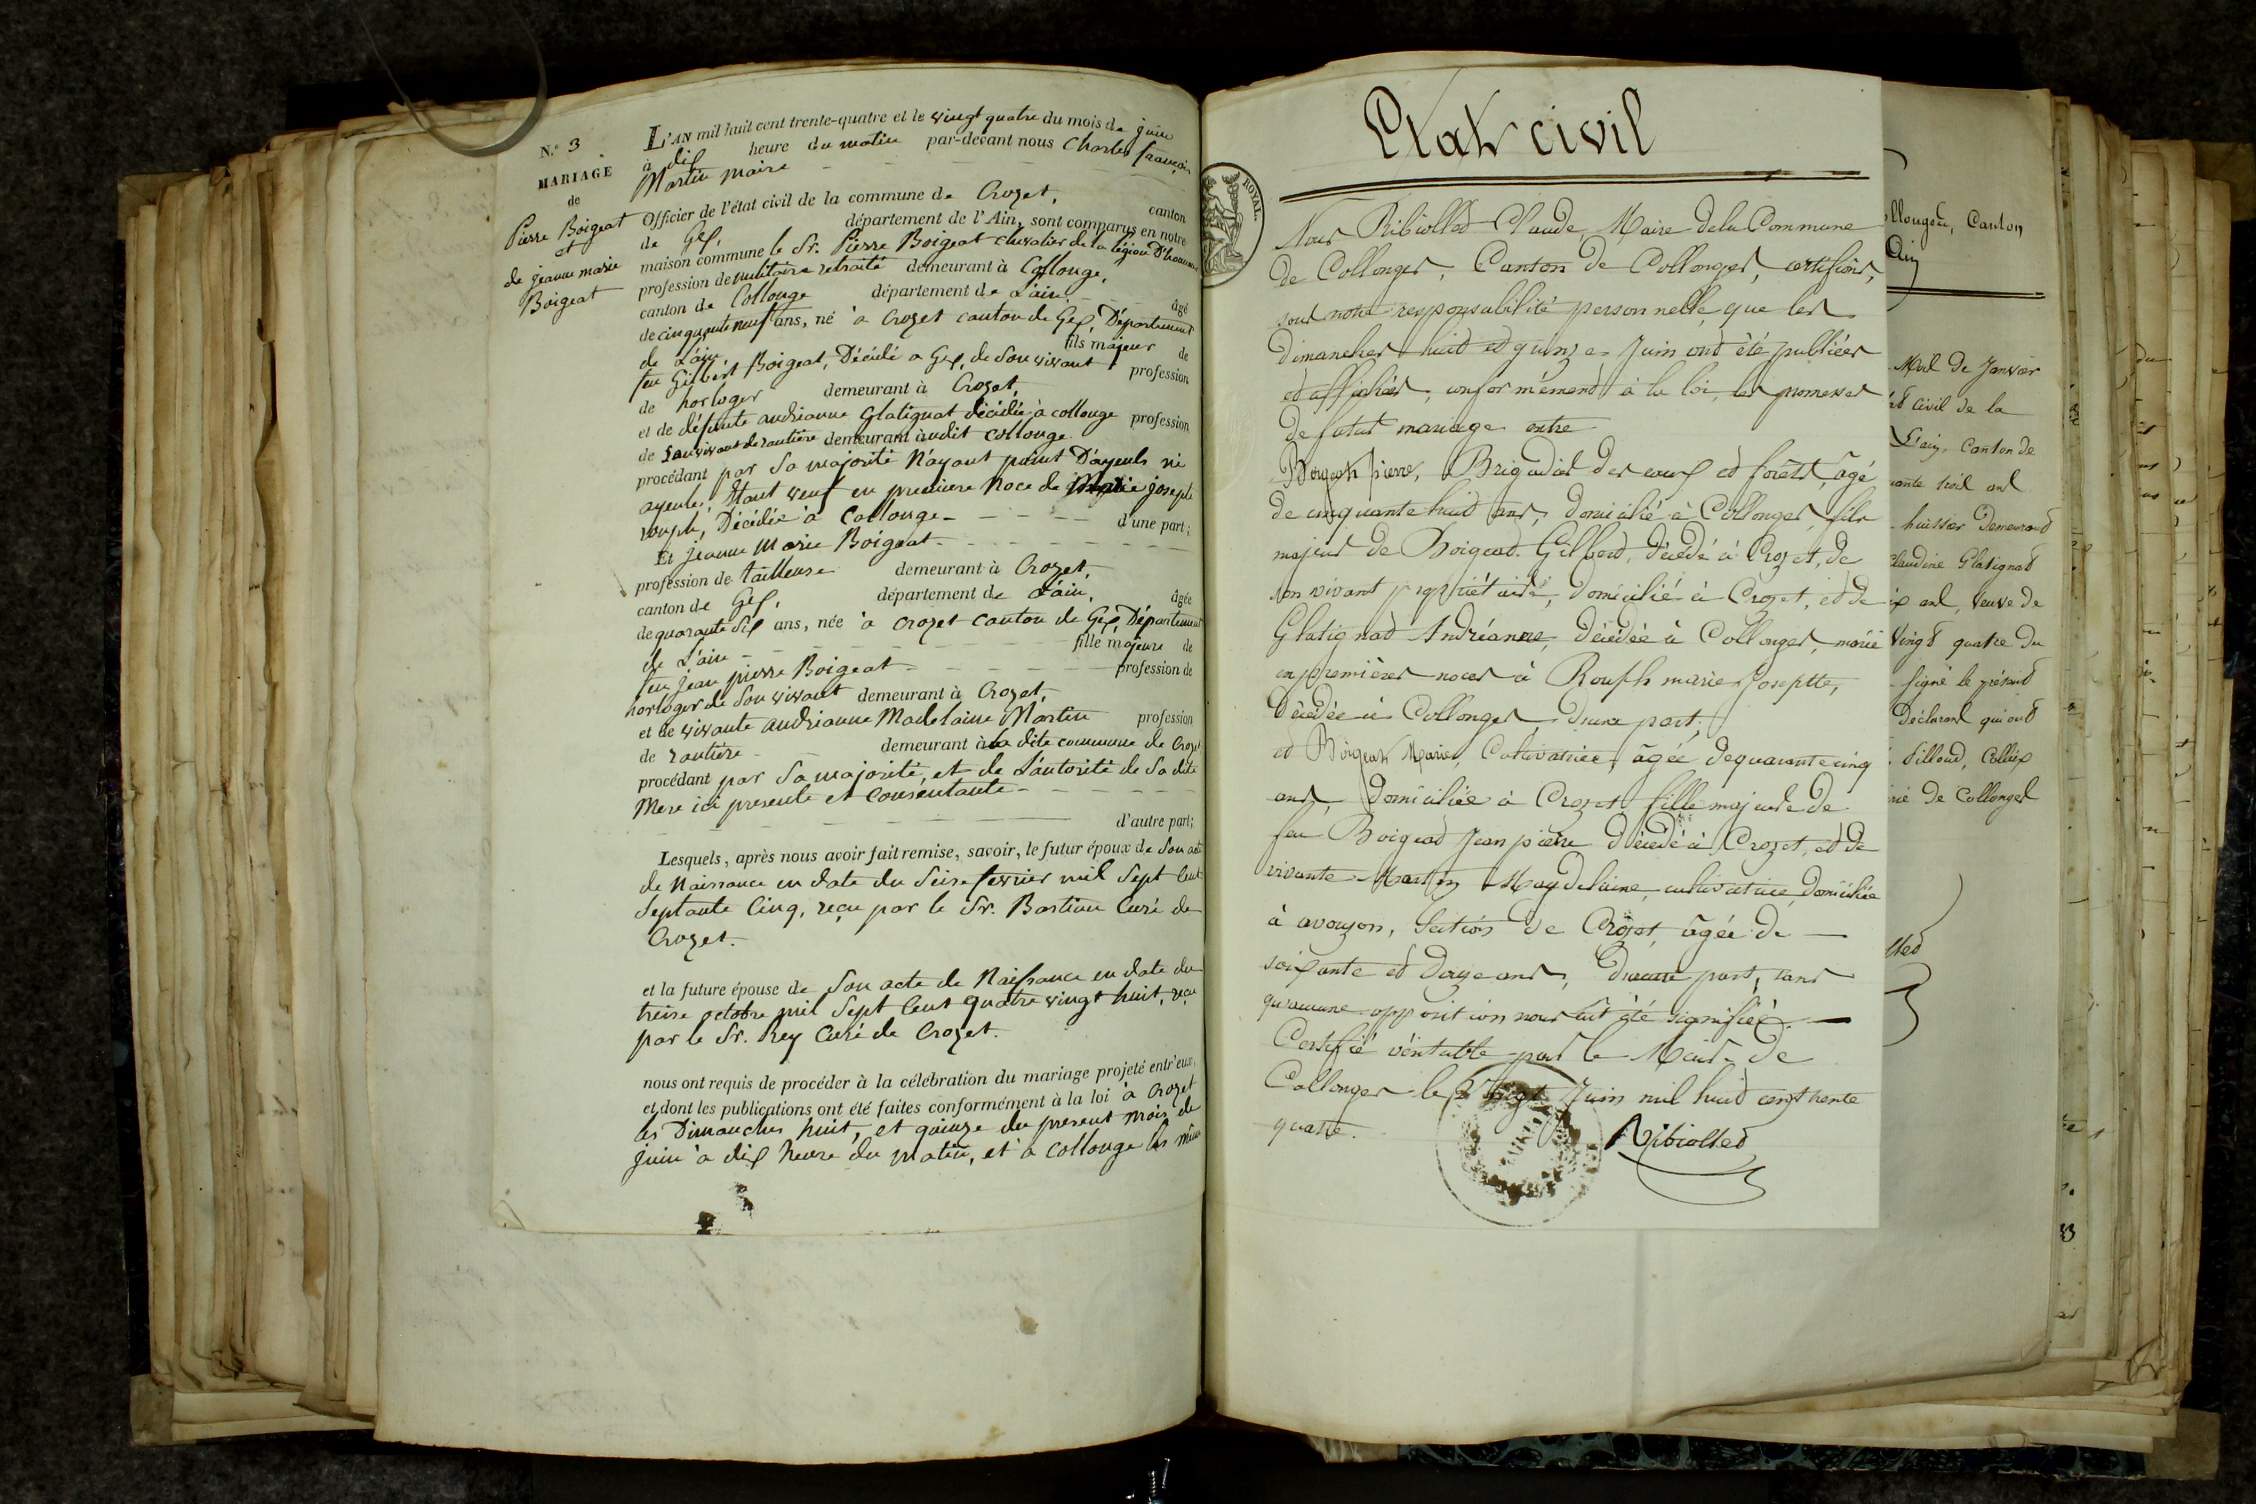 N.º 3
MARIAGE
de
Pierre Boigeat
et
de jeanne marie
Boigeat
L'AN mil huit cent trente-quatre et le vingt quatre du mois de juin
à dix heure du matin par-devant nous Charles françois
Martin maire
Officier de l'état civil de la commune de Crozet, canton
de Gex, département de l'Ain, sont comparus en notre
maison commune le Sr. Pierre Boigeat chevalier de la légion D'honneur
profession de militaire retraité demeurant à Collonge,
canton de Collonge département de L'ain, âgé
de cinquante neuf ans, né à Crozet canton de Gex, Département
de L'ain fils majeur de
feu Gilbert Boigeat, Décédé a Gex, de Son vivant profession
de horloger demeurant à Crozet,
et de défunte andrianne Glatignat décédée à collonge profession
de Son vivant de rantière demeurant audit Collonge
procédant par Sa majorité N'ayant point D'ayeuls ni
ayeules, Etant veuf en premiere Noce de Marie joseph
rouph, Décédée à Collonge - d'une part;
Et Jeanne Marie Boigeat
profession de tailleuse demeurant à Crozet,
canton de Gex, département de L'ain, âgée
de quarante Six ans, née à Crozet canton de Gex, Département
de L'ain fille majeure de
feu jean pierre Boigeat profession de
horloger de Son vivant demeurant à Crozet,
et de vivante andrianne Madelaine Martin profession
de rantière demeurant à la dite commune de Crozet
procédant par Sa majorité, et de L'autorité de Sa dite
Mere ici presente et Consentante
d'autre part;
Lesquels, après nous avoir fait remise, savoir, le futur époux de Son acte
de Naissance en date du Seise fevrier mil Sept Cent
Septante Cinq, reçu par le Sr. Bastian Curé de
Crozet.
et la future épouse de Son acte de Naissance en date du
treise octobre mil Sept Cent quatre vingt huit, reçu
par le Sr. Rey Curé de Crozet.
nous ont requis de procéder à la célébration du mariage projeté entr'eux,
et dont les publications ont été faites conformément à la loi à Crozet
les Dimanches huit, et quinze du present mois de
juin à dix heure du matin, et à Collonge les même
ROYAL.
Etat civil
Nous Ribiollet Claude, Maire de la Commune
de Collonges, Canton de Collonges, certifions,
sous notre responsabilité personnelle, que les
Dimanches huit et quinze Juin ont été publiées
et affichées, conformément à la loi, les promesses
de futur mariage entre
Boigeat pierre, Brigadier des eaux et forêts, âgé
de cinquante huit ans, domicilié à Collonges, fils
majeur de Boigeat Gilbert, décédé à Crozet, de
son vivant propriétaire, domicilié à Crozet, et de
Glatignat Andréanne, décédée à Collonges, marié
en premières noces à Rouph marie Josephte,
Décédée à Collonges, d'une part;
et Boigeat Marie, Cultivatrice, âgée de quarante cinq
ans, domiciliée à Crozet fille majeure de
feu Boigeat Jean pierre décédé à Crozet, et de
vivante Martin Magdelaine, cultivatrice, domiciliée
à avouzon, Section de Crozet, âgée de
soixante et douze ans, d'autre part, sans
qu'aucune opposition nous ait été signifiée.
Certifié véritable par le Maire de
Collonges le Vingt Juin mil huit cent trente
quatre.
Ribiollet
Collonges, Canton
Ain
Mil de Janvier
civil de la
L'ain, Canton de
huissier Demeurant
Claudine Glatignat
ans, veuve de
Vingt quatre du
signé le présent
Déclarans qui ont
de Collonges